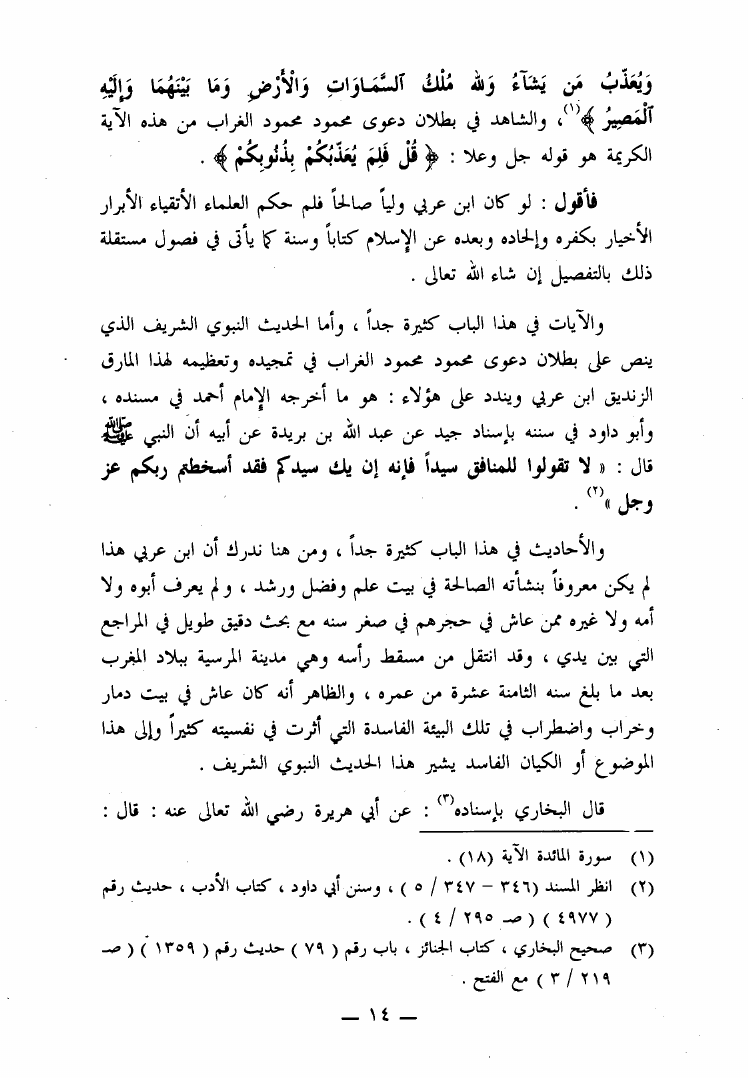 وَيُعَذِّبُ مَن يَشَآءُ وَلله مُلْكُ ٱلسَّمَـاوَاتِ وَالْأَرْضِ وَمَا بَيْنَهُمَا وَإِلَيْهِ
ٱلْمَصِيرُ ﴾(١)، والشاهد في بطلان دعوى محمود محمود الغراب من هذه الآية
الكريمة هو قوله جل وعلا : ﴿ قُلْ فَلِمَ يُعَذِّبُكُمْ بِذُنُوبِكُمْ ﴾ .
فأقول : لو كان ابن عربي ولياً صالحاً فلم حكم العلماء الأتقياء الأبرار
الأخيار بكفره وإلحاده وبعده عن الإسلام كتاباً وسنة كما يأتى في فصول مستقلة
ذلك بالتفصيل إن شاء الله تعالى .
والآيات في هذا الباب كثيرة جداً ، وأما الحديث النبوي الشريف الذي
ينص على بطلان دعوى محمود محمود الغراب في تمجيده وتعظيمه لهذا المارق
الزنديق ابن عربي ويندد على هؤلاء : هو ما أخرجه الإمام أحمد في مسنده ،
وأبو داود في سننه بإسناد جيد عن عبد الله بن بريدة عن أبيه أن النبي ﷺ
قال : « لا تقولوا للمنافق سيداً فإنه إن يك سيدكم فقد أسخطتم ربكم عز
وجل »(٢) .
والأحاديث في هذا الباب كثيرة جداً ، ومن هنا ندرك أن ابن عربي هذا
لم يكن معروفاً بنشأته الصالحة في بيت علم وفضل ورشد ، ولم يعرف أبوه ولا
أمه ولا غيره ممن عاش في حجرهم في صغر سنه مع بحث دقيق طويل في المراجع
التي بين يدي ، وقد انتقل من مسقط رأسه وهي مدينة المرسية ببلاد المغرب
بعد ما بلغ سنه الثامنة عشرة من عمره ، والظاهر أنه كان عاش في بيت دمار
وخراب واضطراب في تلك البيئة الفاسدة التي أثرت في نفسيته كثيراً وإلى هذا
الموضوع أو الكيان الفاسد يشير هذا الحديث النبوي الشريف .
قال البخاري بإسناده(٣) : عن أبي هريرة رضي الله تعالى عنه : قال :
(١) سورة المائدة الآية (١٨) .
(٢) انظر المسند (٣٤٦ – ٣٤٧ / ٥ ) ، وسنن أبي داود ، كتاب الأدب ، حديث رقم
( ٤٩٧٧ ) ( صـ ٢٩٥ / ٤ ) .
(٣) صحيح البخاري ، كتاب الجنائز ، باب رقم ( ٧٩ ) حديث رقم ( ١٣٥٩ ) ( صـ
٢١٩ / ٣ ) مع الفتح .
— ١٤ —